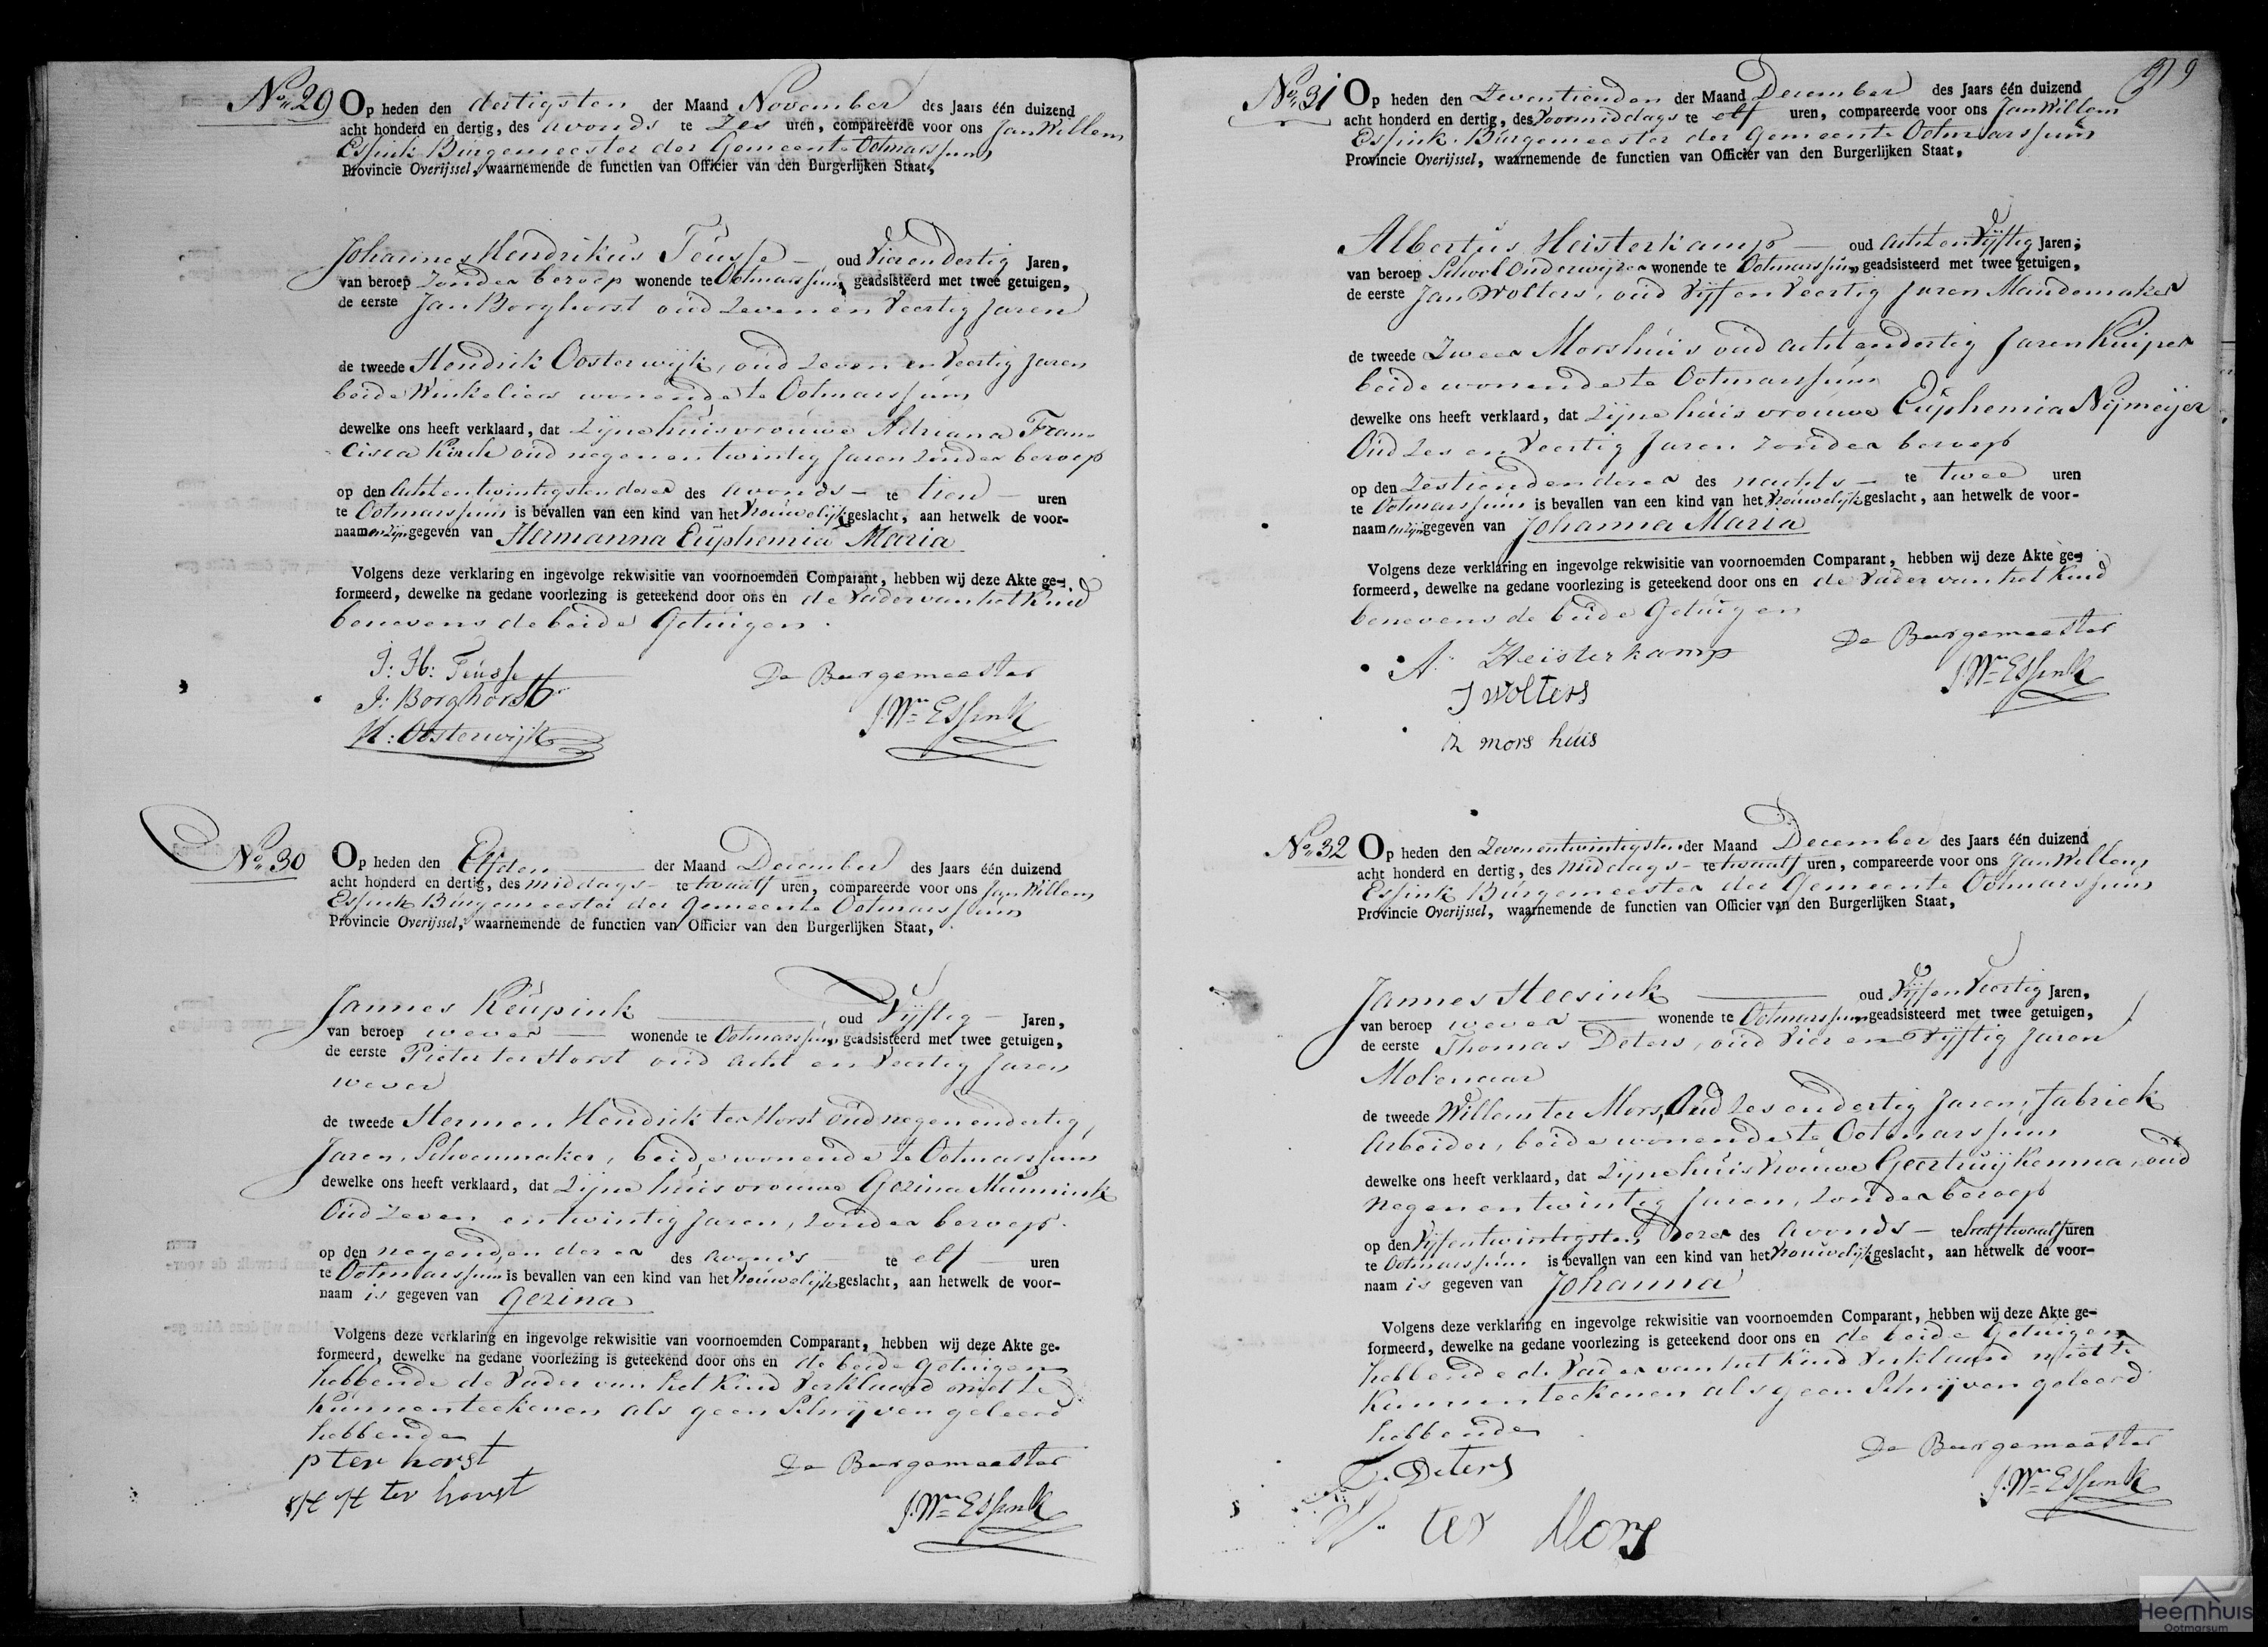 No. 29 Op heden den dertigsten der Maand November des Jaars één duizend
acht honderd en dertig, des avonds te zes uren, compareerde voor ons Jan Willem
Essink Burgemeester der Gemeente Ootmarssum
Provincie Overijssel, waarnemende de functien van Officier van den Burgerlijken Staat,
Johannes Hendrikus Teusse oud Vierendertig Jaren,
van beroep zonder beroep wonende te Ootmarssum geadsisteerd met twee getuigen,
de eerste Jan Borghorst oud zeven en Veertig Jaren
de tweede Hendrik Oosterwijk, oud zeven en Veertig Jaren
beide Winkeliers wonende te Ootmarssum
dewelke ons heeft verklaard, dat zijne huisvrouwe Adriana Fran=
cisca oud negenentwintig Jaren zonder beroep
op den Achtentwintigsten dezer des avonds te tien uren
te Ootmarssum is bevallen van een kind van het Vrouwelijk geslacht, aan hetwelk de voor-
naam en zijn gegeven van Hermanna Euphemia Maria
Volgens deze verklaring en ingevolge rekwisitie van voornoemden Comparant, hebben wij deze Akte ge-
formeerd, dewelke na gedane voorlezing is geteekend door ons en de Vader van het Kind
benevens de beide Getuigen.
J: H: Teusse
J: Borghorst
H: Oosterwijk
De Burgemeester
J. Wm Essink
No. 30 Op heden den Elfden der Maand December des Jaars één duizend
acht honderd en dertig, des middags te twaalf uren, compareerde voor ons Jan Willem
Essink Burgemeester der Gemeente Ootmarssum
Provincie Overijssel, waarnemende de functien van Officier van den Burgerlijken Staat,
Jannes Keupink oud Vijftig Jaren,
van beroep wever wonende te Ootmarssum geadsisteerd met twee getuigen,
de eerste Pieter ter Horst oud acht en Veertig Jaren
wever
de tweede Hermen Hendrik ter Horst oud negenendertig
Jaren, Schoenmaker, beide wonende te Ootmarssum
dewelke ons heeft verklaard, dat zijne huisvrouwe Gezina Munnink
Oud zeven entwintig Jaren, zonder beroep.
op den negenden dezer des avonds te elf uren
te Ootmarssum is bevallen van een kind van het Vrouwelijk geslacht, aan hetwelk de voor-
naam is gegeven van Gezina
Volgens deze verklaring en ingevolge rekwisitie van voornoemden Comparant, hebben wij deze Akte ge-
formeerd, dewelke na gedane voorlezing is geteekend door ons en de beide Getuigen
hebbende de Vader van het Kind Verklaard niet te
kunnen teekenen als geen Schrijven geleerd
hebbende
p ter horst
H H ter horst
De Burgemeester
J. Wm Essink
No. 31 Op heden den Zeventienden der Maand December des Jaars één duizend
acht honderd en dertig, des Voormiddags te elf uren, compareerde voor ons Jan Willem
Essink Burgemeester der Gemeente Ootmarssum
Provincie Overijssel, waarnemende de functien van Officier van den Burgerlijken Staat,
Albertus Heisterkamp oud achtenVijftig Jaren,
van beroep School Onderwijzer wonende te Ootmarssum geadsisteerd met twee getuigen,
de eerste Jan Wolters, oud Vijf en Veertig Jaren Mandemaker
de tweede Zweer Morshuis oud acht endertig Jaren Kuiper
beide wonende te Ootmarssum
dewelke ons heeft verklaard, dat zijne huisvrouwe Euphemia Nijmeijer
Oud zes en Veertig Jaren zonder beroep
op den zestienden dezer des nachts te twee uren
te Ootmarssum is bevallen van een kind van het Vrouwelijk geslacht, aan hetwelk de voor-
naam en zijn gegeven van Johanna Maria
Volgens deze verklaring en ingevolge rekwisitie van voornoemden Comparant, hebben wij deze Akte ge-
formeerd, dewelke na gedane voorlezing is geteekend door ons en de Vader van het Kind
benevens de beide Getuigen
A. Heisterkamp
J Wolters
Z mors huis
De Burgemeester
J. Wm Essink
No. 32 Op heden den Zevenentwintigsten der Maand December des Jaars één duizend
acht honderd en dertig, des middags te twaalf uren, compareerde voor ons Jan Willem
Essink Burgemeester der Gemeente Ootmarssum
Provincie Overijssel, waarnemende de functien van Officier van den Burgerlijken Staat,
Jannes Heesink oud Vijfen Veertig Jaren,
van beroep wever wonende te Ootmarssum geadsisteerd met twee getuigen,
de eerste Thomas Deters, oud Vier en Vijftig Jaren
Molenaar
de tweede Willem ter Mors, Oud zes endertig Jaren, fabriek
Arbeider, beide wonende te Ootmarssum
dewelke ons heeft verklaard, dat zijne huisVrouwe Geertruij Kemna, oud
negenentwintig Jaren, zonder beroep
op den Vijfentwintigsten dezer des avonds te half twaalf uren
te Ootmarssum is bevallen van een kind van het Vrouwelijk geslacht, aan hetwelk de voor-
naam is gegeven van Johanna
Volgens deze verklaring en ingevolge rekwisitie van voornoemden Comparant, hebben wij deze Akte ge-
formeerd, dewelke na gedane voorlezing is geteekend door ons en de beide Getuigen
hebbende de Vader van het Kind Verklaard niet te
kunnen teekenen als geen Schrijven geleerd
hebbende
T. Deters
W. ter Mors
De Burgemeester
J. Wm Essink
Heemhuis
Ootmarsum